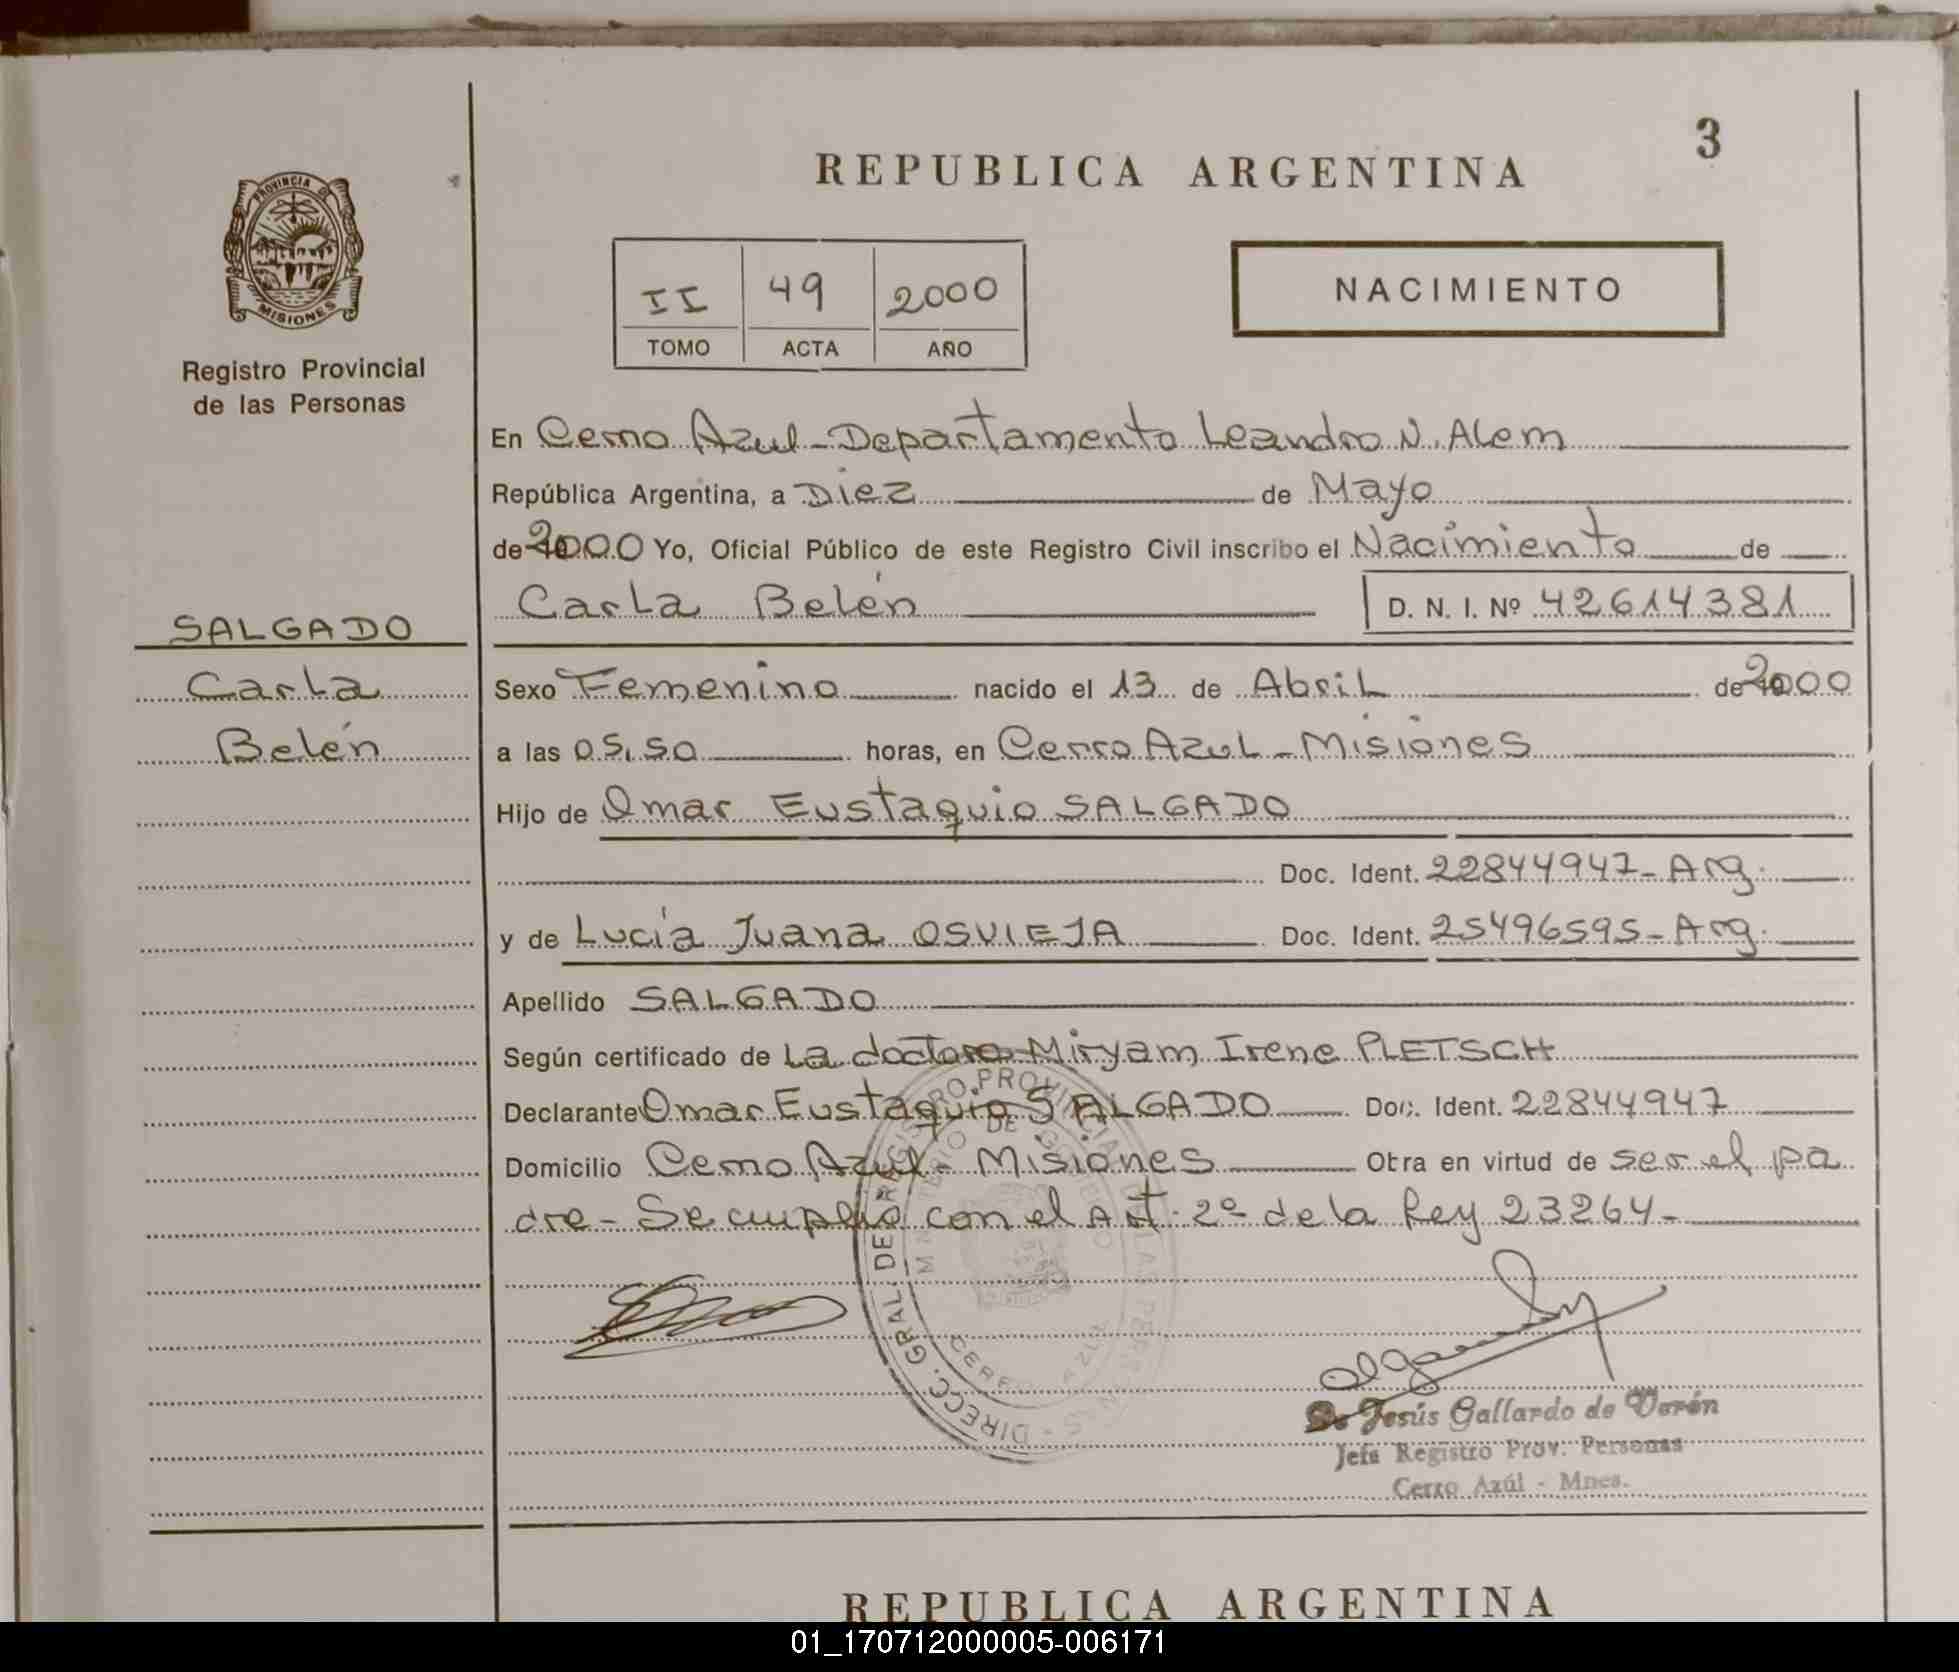 3
REPUBLICA ARGENTINA
PROVINCIA DE
MISIONES
Registro Provincial
de las Personas
II 49 2000
TOMO ACTA AÑO
NACIMIENTO
En Cerro Azul - Departamento Leandro N. Alem
República Argentina, a Diez de Mayo
de 2000 Yo, Oficial Público de este Registro Civil inscribo el Nacimiento de
Carla Belén D. N. I. Nº 42614381
SALGADO
Carla
Belén
Sexo Femenino nacido el 13 de Abril de 2000
a las 05,50 horas, en Cerro Azul - Misiones
Hijo de Omar Eustaquio SALGADO
Doc. Ident. 22844947 - Arg.
y de Lucía Juana OSVIEJA Doc. Ident. 25496595 - Arg.
Apellido SALGADO
Según certificado de La doctora Miryam Irene PLETSCH
Declarante Omar Eustaquio SALGADO Doc. Ident. 22844947
Domicilio Cerro Azul - Misiones Otra en virtud de ser el pa
dre - Se cumplió con el Art. 2º de la Ley 23264 -
DIRECC. GRAL. DE REGISTRO PROVINCIAL DE LAS PERSONAS
MINISTERIO DE GOBIERNO
CERRO AZUL
de Jesús Gallardo de Verón
Jefe Registro Prov. Personas
Cerro Azúl - Mnes.
REPUBLICA ARGENTINA
01_170712000005-006171